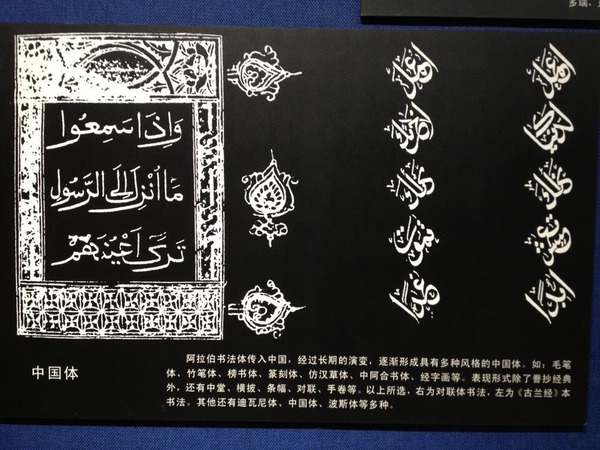 وَإِذَا سَمِعُوا
مَا أُنْزِلَ إِلَى الرَّسُولِ
تَرَى أَعْيُنَهُمْ
اعمل
لدنياك
كأنك
تعيش
ابدا
اعمل
لآخرتك
كأنك
تموت
غدا
中国体
阿拉伯书法体传入中国，经过长期的演变，逐渐形成具有多种风格的中国体。如：毛笔
体、竹笔体、榜书体、篆刻体、仿汉草体、中阿合书体、经字画等。表现形式除了誊抄经典
外，还有中堂、横披、条幅、对联、手卷等。以上所选，右为对联体书法，左为《古兰经》本
书法。其他还有迪瓦尼体、中国体、波斯体等多种。